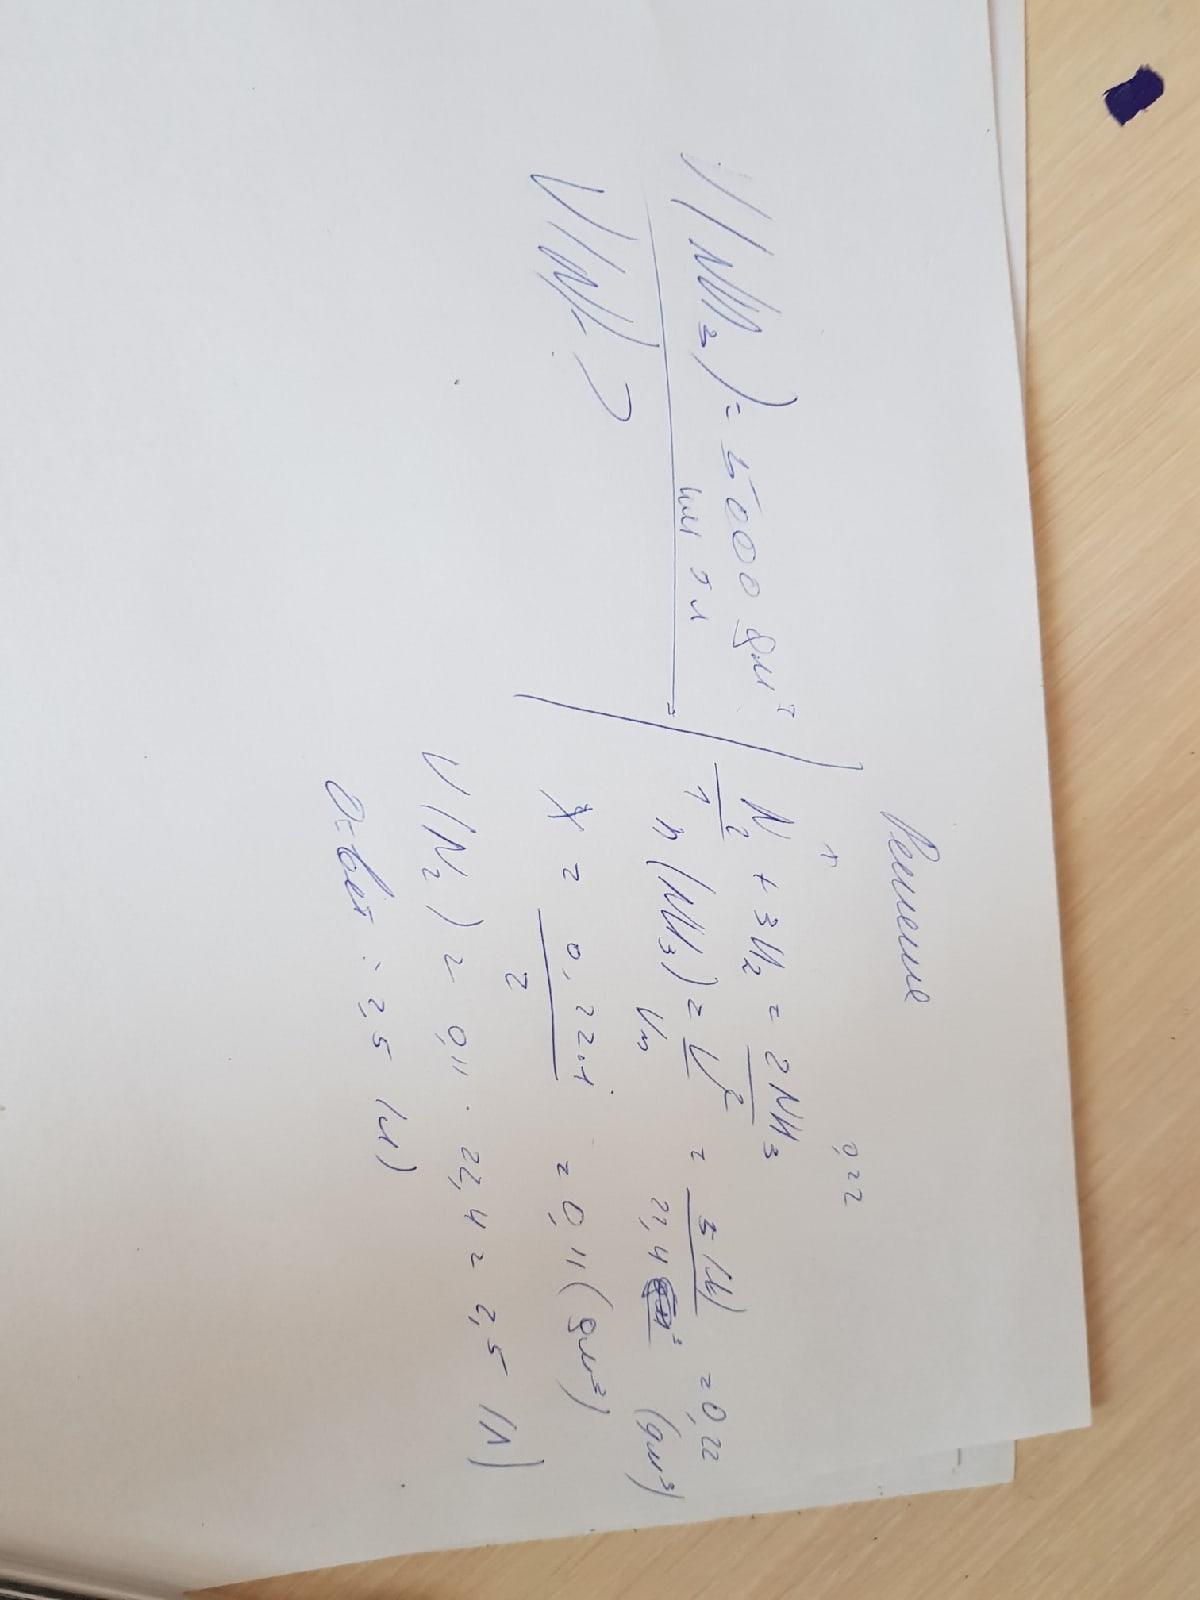 V(NH3) = 5000 дм³
или 5 л
V(N2) ?
Решение
1 0,22
N2 + 3H2 = 2NH3
1 2
n(NH3) = V/Vm = 5(л)/22,4 = 0,22 (дм³)
x = 0,22·1/2 = 0,11 (дм³)
V(N2) = 0,11 · 22,4 = 2,5 (л)
Ответ: 2,5 (л)